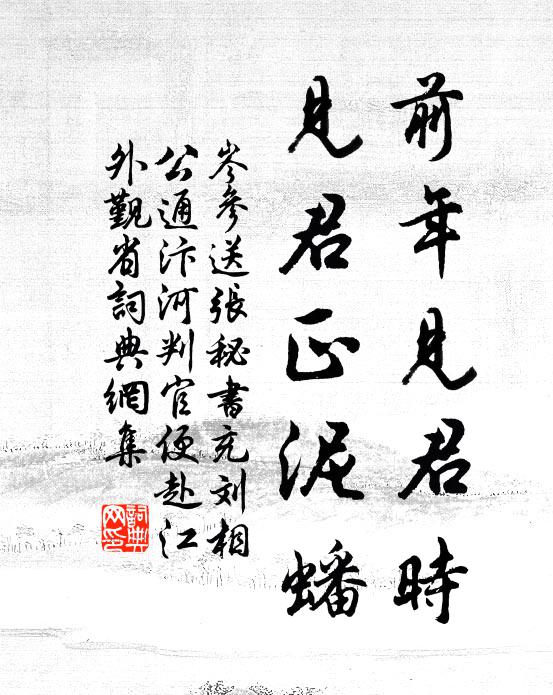 前年見君時
見君正泥蟠
岑參送張秘書充刘相
公通汴河判官便赴江
外觐省詞典網集
詞典網印